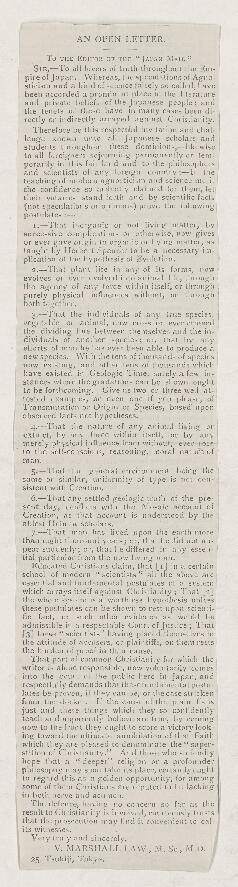 AN OPEN LETTER.
TO THE EDITOR OF THE "JAPAN MAIL."
SIR,—To all lovers of truth throughout the Em-
pire of Japan. Whereas, the speculations of Agno-
sticism and a kind of science falsely so called, have
been accorded a prominent place in the literature
and private beliefs of the Japanese people; and
the tenets of these have in many cases been di-
rectly or indirectly arrayed against Christianity.
Therefore be this respectful invitation and chal-
lenge known unto all Japanese scholars and
students throughout these dominions,—likewise
to all foreigners sojourning permanently or tem-
porarily in this fair land and to the philosophers
and scientists of any foreign country—if the
teachings of modern agnosticism and science merit
the confidence so ardently claimed for them, let
their votaries stand forth and by scientific facts
(not speculations or opinions) prove the following
postulates:—
1.—That inorganic or not living matter, by
successive combinations or otherwise, now gives
or ever gave origin to organic or living matter, as
taught by Herbert Spencer to be a necessary im-
plication of the hypothesis of Evolution.
2.—That plant life in any of its forms, now
evolves or ever evolved into animal life, through
the agency of any force within itself, or through
purely physical influences without, or through
both together.
3.—That the individuals of any true species,
vegetable or animal, now cross or ever crossed
the dividing line between themselves and the in-
dividuals of another species; or, that by any
efforts of man he has ever been able to produce a
new species. With the tens of thousands of species
now existing, and other tens of thousands which
have existed in Geologic Time, surely a few in-
stances when the guidance can be shown ought
to be forthcoming. Give us two or three well at-
tested examples, or even one if you please, of
Transmutation or Origin of Species, based upon
observed facts not hypotheses.
4.—That the nature of any animal living or
extinct, by any force within itself, or by any
merely physical influence from without, ever rose
to the self-conscious, reasoning, moral nature of
man.
5.—That the general environment being the
same or similar, uniformity of type is not con-
sistent with Creation.
6.—That any settled geologic truth of the pre-
sent day, conflicts with the Mosaic account of
Creation, as that account is understood by the
ablest Hebrew scholars.
7.—That man has lived upon the earth more
than eight thousand years; or, that he did not ap-
pear suddenly; or, that he differed in any essen-
tial particular from the now living man.
Educated Christians claim, that [1] in a certain
school of modern "scientists" all the above are
essential and fundamental postulates of a system
which arrays itself against Christianity; That [2]
the whole system is a worthless hypothesis unless
these postulates can be shown to rest upon scienti-
fic fact, or such other evidence as would be
admissible in a reputable Court of Justice; That
[3] these "scientists" having placed themselves in
the attitude of accusers, or plaintiffs, on them rests
the burden of proof in this cause.
That part of common Christianity for which the
writer is alone responsible, now voluntarily comes
into the court of the public here in Japan, and
respectfully demands that these fundamental postu-
lates be proven, if they can be, or the case stricken
from the docket. If the cause of the plaintiffs is
just and these things which they so confidently
teach and apparently believe are true, by coming
now to the front they ought to score a victory look-
ing toward the ultimate annihilation of that Faith
which they are pleased to denominate the "super-
stition of Christianity." And those who ardently
hope that a "deeper" religion or a profounder
philosophy may soon take its place, certainly ought
to regard this as a golden opportunity, for among
some of them Christians are reputed to be lacking
in both nerve and acumen.
The defense, having no concern so far as the
result to Christianity is involved, earnestly trusts
that the prosecution may find it convenient to call
its witnesses.
Very truly and sincerely,
V. MARSHALL LAW, M. Sc., M.D.
25, Tsukiji, Tokyo.